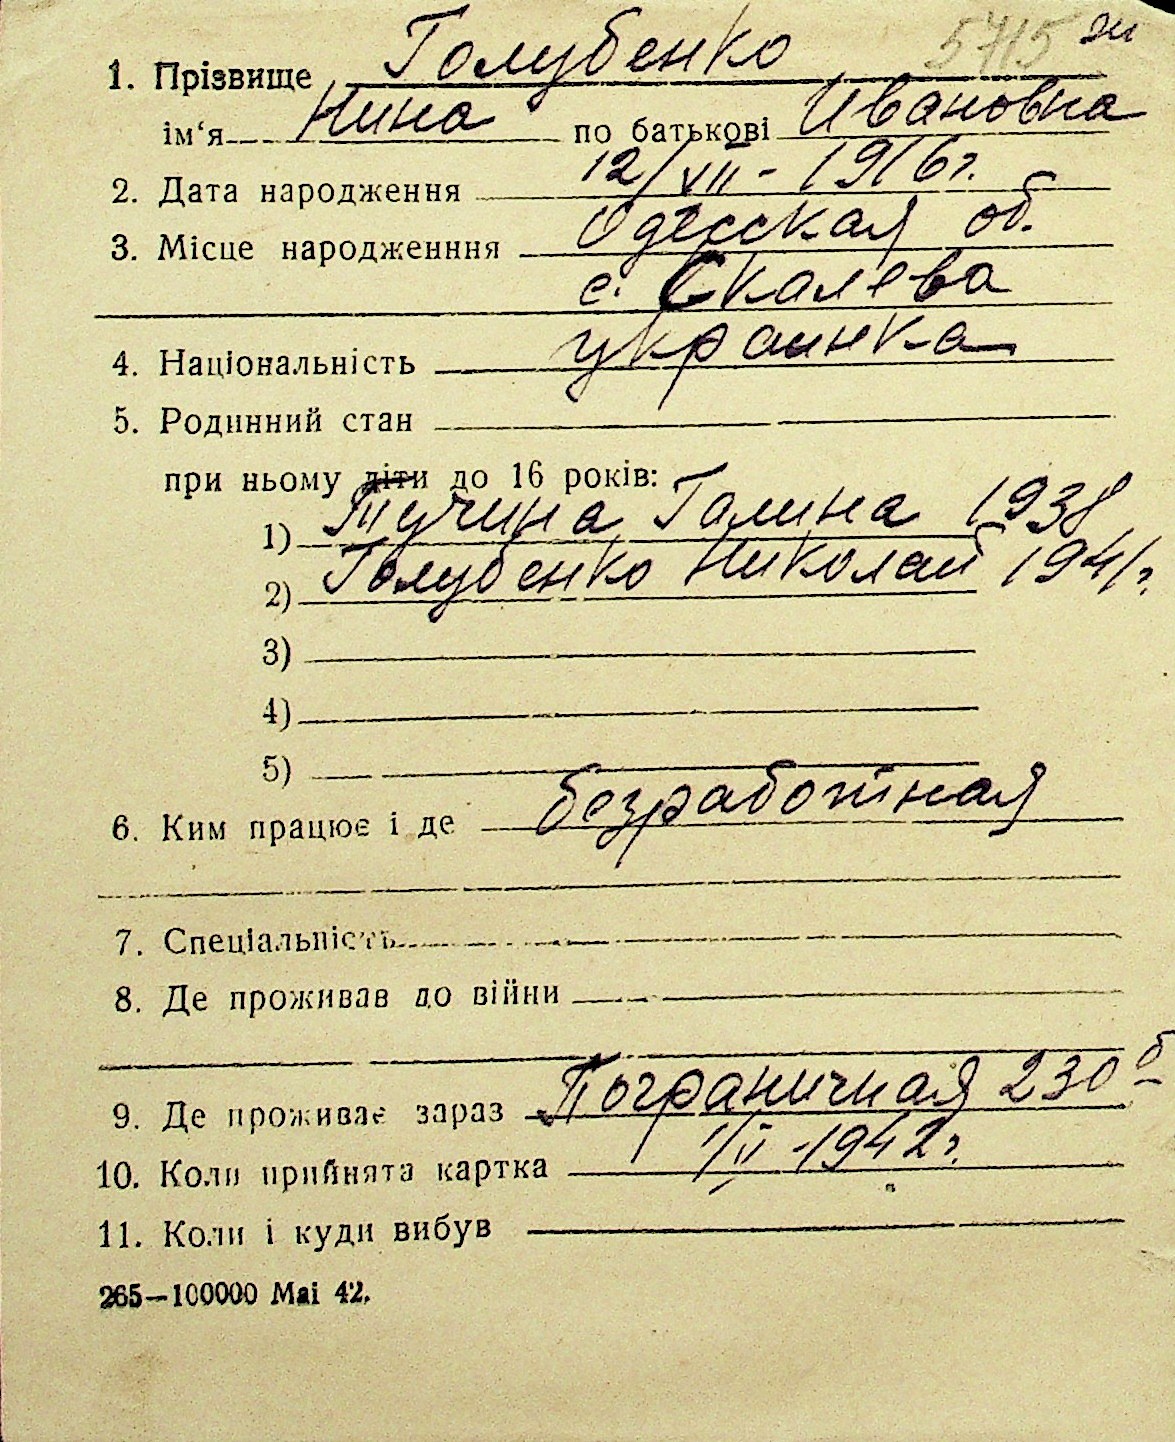 5715 ж
1. Прізвище Голубенко
ім‘я Нина по батькові Ивановна
2. Дата народження 12/VII - 1916 г.
3. Місце народженння Одесская об.
с. Скалева
4. Національність украинка
5. Родинний стан
при ньому діти до 16 років:
1) Тучина Галина 1938
2) Голубенко Николай 1941 г.
3)
4)
5)
6. Ким працює і де безработная
7. Спеціальність
8. Де проживав до війни
9. Де проживає зараз Пограничная 230 б
10. Коли прийнята картка 1/II - 1942 г.
11. Коли і куди вибув
265—100000 Mai 42.